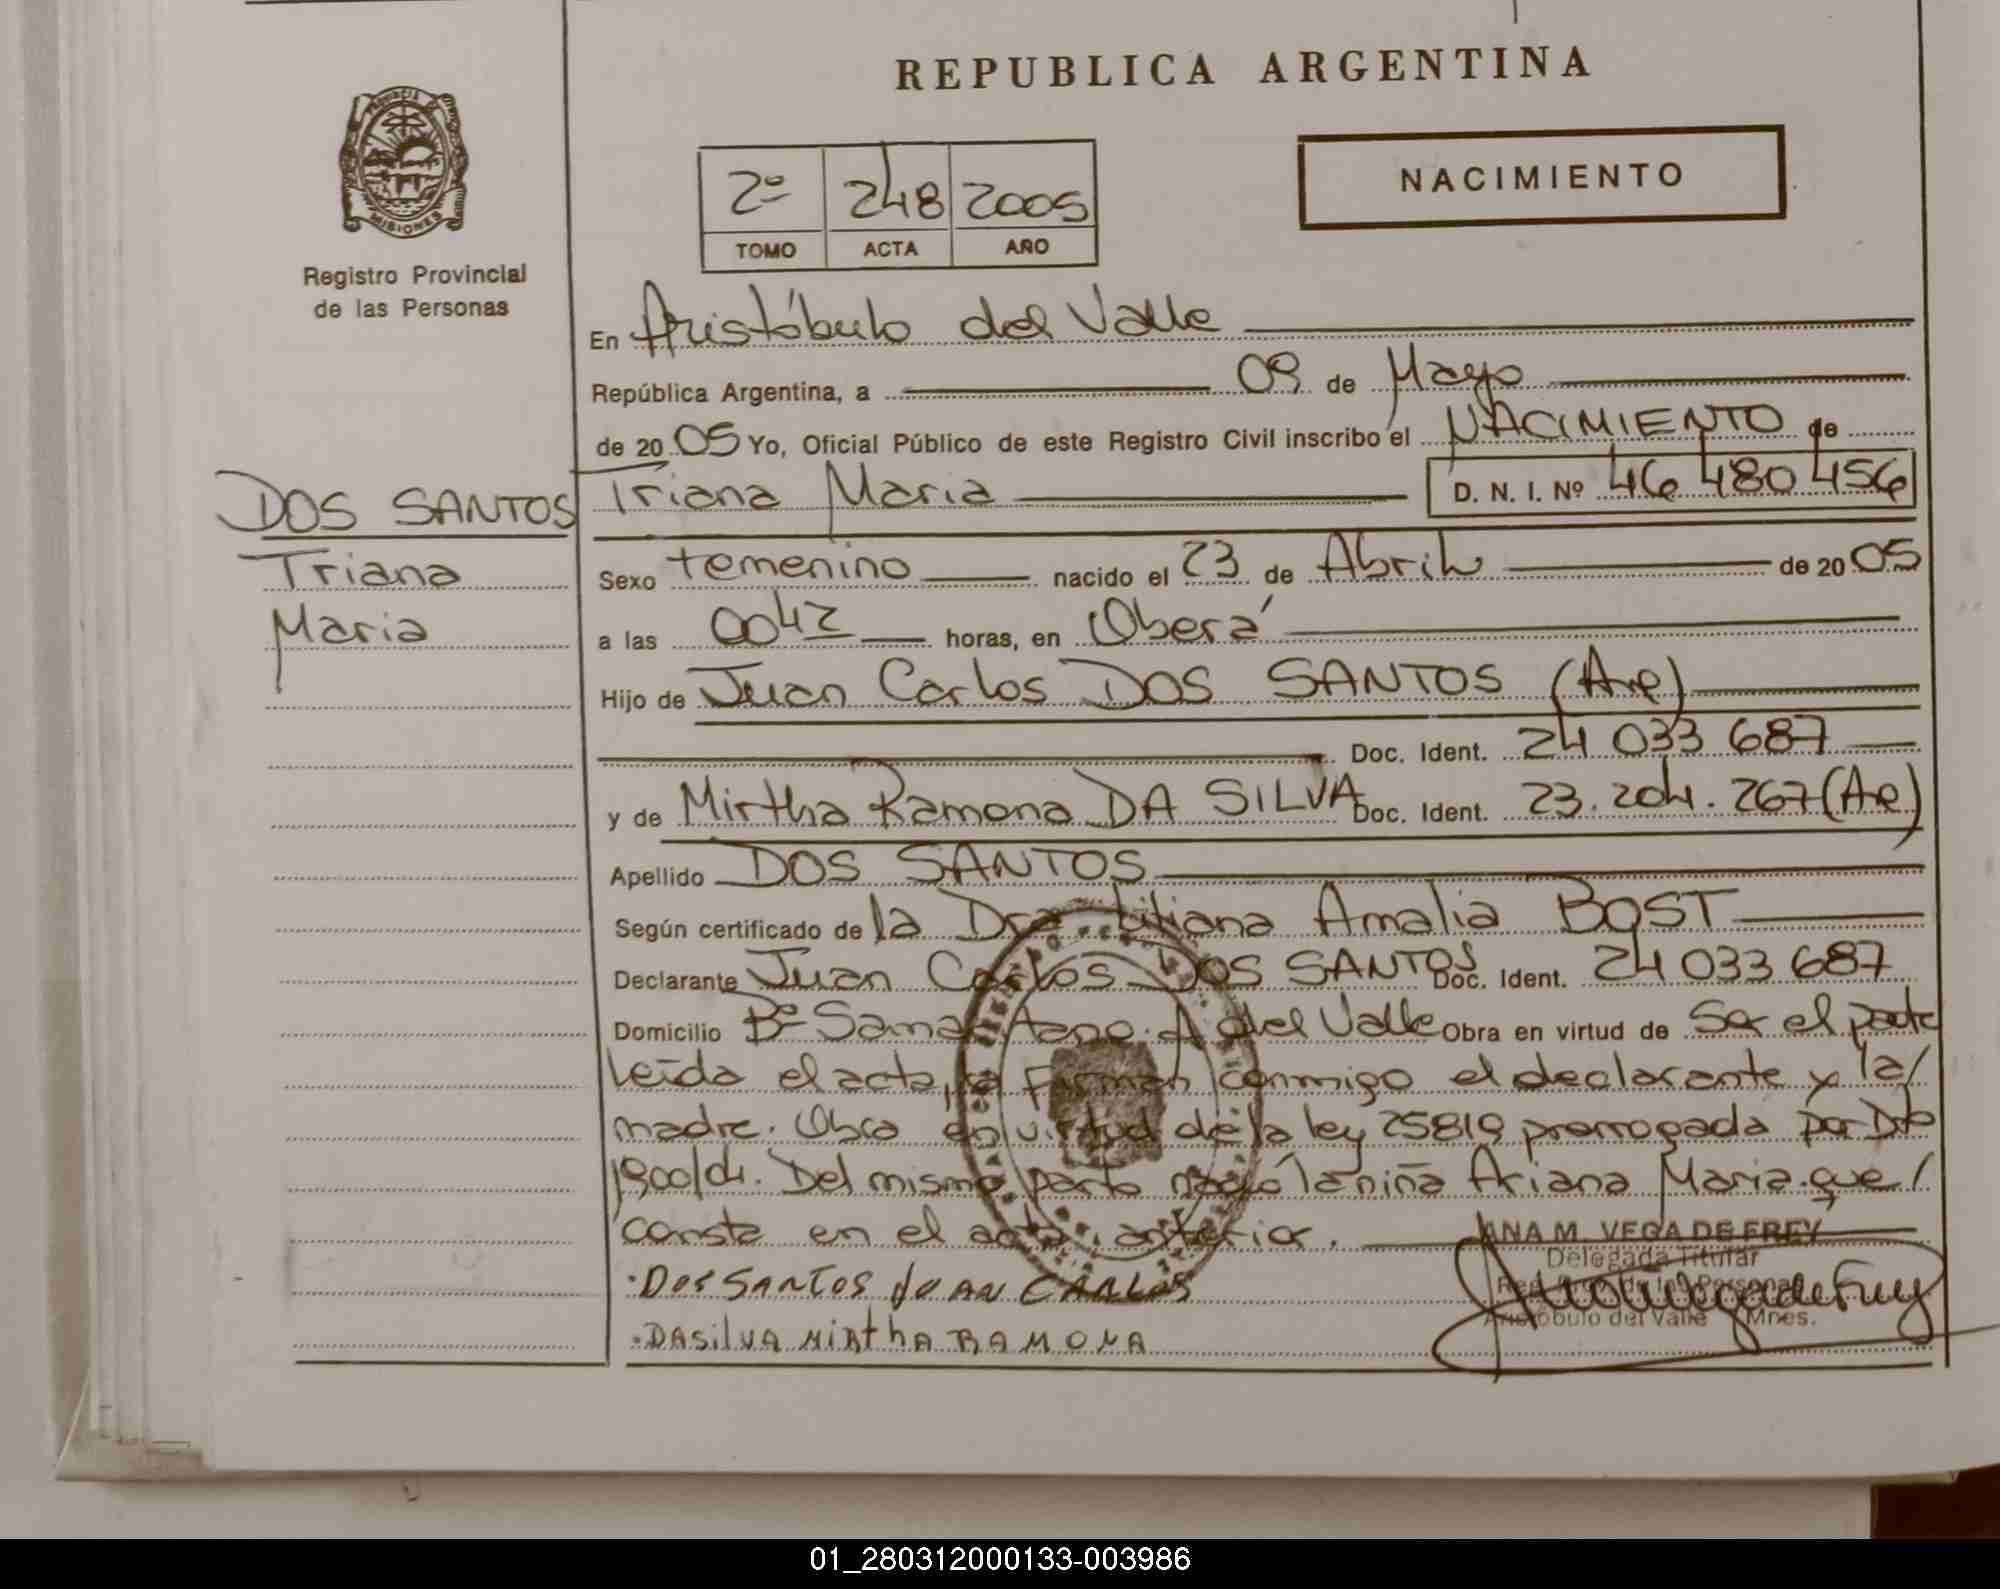 REPUBLICA ARGENTINA
PROVINCIA DE
MISIONES
Registro Provincial
de las Personas
2º 248 2005
TOMO ACTA AÑO
NACIMIENTO
En Aristóbulo del Valle
República Argentina, a 09 de Mayo
de 2005 Yo, Oficial Público de este Registro Civil inscribo el NACIMIENTO de
Triana Maria D. N. I. Nº 46 480 456
DOS SANTOS
Triana
Maria
Sexo femenino nacido el 23 de Abril de 2005
a las 0042 horas, en Oberá
Hijo de Juan Carlos DOS SANTOS (Ar)
Doc. Ident. 24 033 687
y de Mirtha Ramona DA SILVA Doc. Ident. 23.204.267 (Ar)
Apellido DOS SANTOS
Según certificado de la Dra Liliana Amalia BOST
Declarante Juan Carlos DOS SANTOS Doc. Ident. 24 033 687
Domicilio Bº A del Valle Obra en virtud de Ser el padre
Leída el acta, la firman conmigo el declarante y la/
madre. Obra en virtud de la ley 25819 prorrogada por Dto
1900/04. Del mismo parto nació la niña Ariana Maria que/
consta en el acta anterior.
ANA M. VEGA DE FREY
Delegada Titular
Aristóbulo del Valle Mnes.
DOS SANTOS JUAN CARLOS
DASILVA MIRTHA RAMONA
01_280312000133-003986